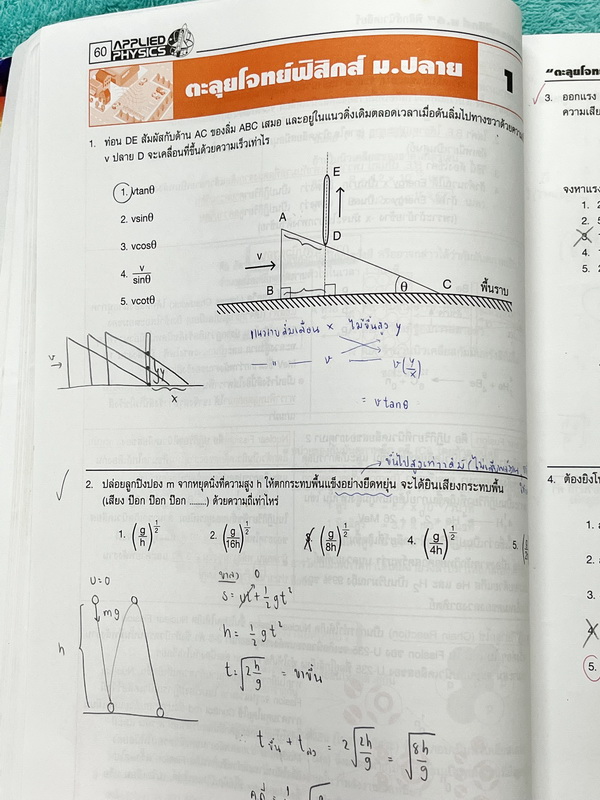 60 APPLIED PHYSICS
ตะลุยโจทย์ฟิสิกส์ ม.ปลาย 1
1. ท่อน DE สัมผัสกับด้าน AC ของลิ่ม ABC เสมอ และอยู่ในแนวดิ่งเดิมตลอดเวลาเมื่อดันลิ่มไปทางขวาด้วยความ
v ปลาย D จะเคลื่อนที่ขึ้นด้วยความเร็วเท่าไร
1. vtanθ
2. vsinθ
3. vcosθ
4. v/sinθ
5. vcotθ
E
A
D
v
B
θ
C
พื้นราบ
x ไม้ขึ้นสูง y
v v(y/x)
= vtanθ
v
y
x
2. ปล่อยลูกปิงปอง m จากหยุดนิ่งที่ความสูง h ให้ตกกระทบพื้นแข็งอย่างยืดหยุ่น จะได้ยินเสียงกระทบพื้น
(เสียง ป๊อก ป๊อก ป๊อก ........) ด้วยความถี่เท่าไหร่
1. (g/h)^1/2
2. (g/16h)^1/2
3. (g/8h)^1/2
4. (g/4h)^1/2
5.
u=0
mg
h
ขาลง 0
s = ut + 1/2 gt²
h = 1/2 gt²
t = √2h/g = ขาขึ้น
∴ t ขึ้น + t ลง = 2√2h/g = √8h/g
"ตะลุยโจท
3. ออกแรง
ความเสีย
จงหาแรง
1. 2
2. 5
3
4. 1
5. 2
4. ต้องยิงโ
1.
2.
3.
4
5.